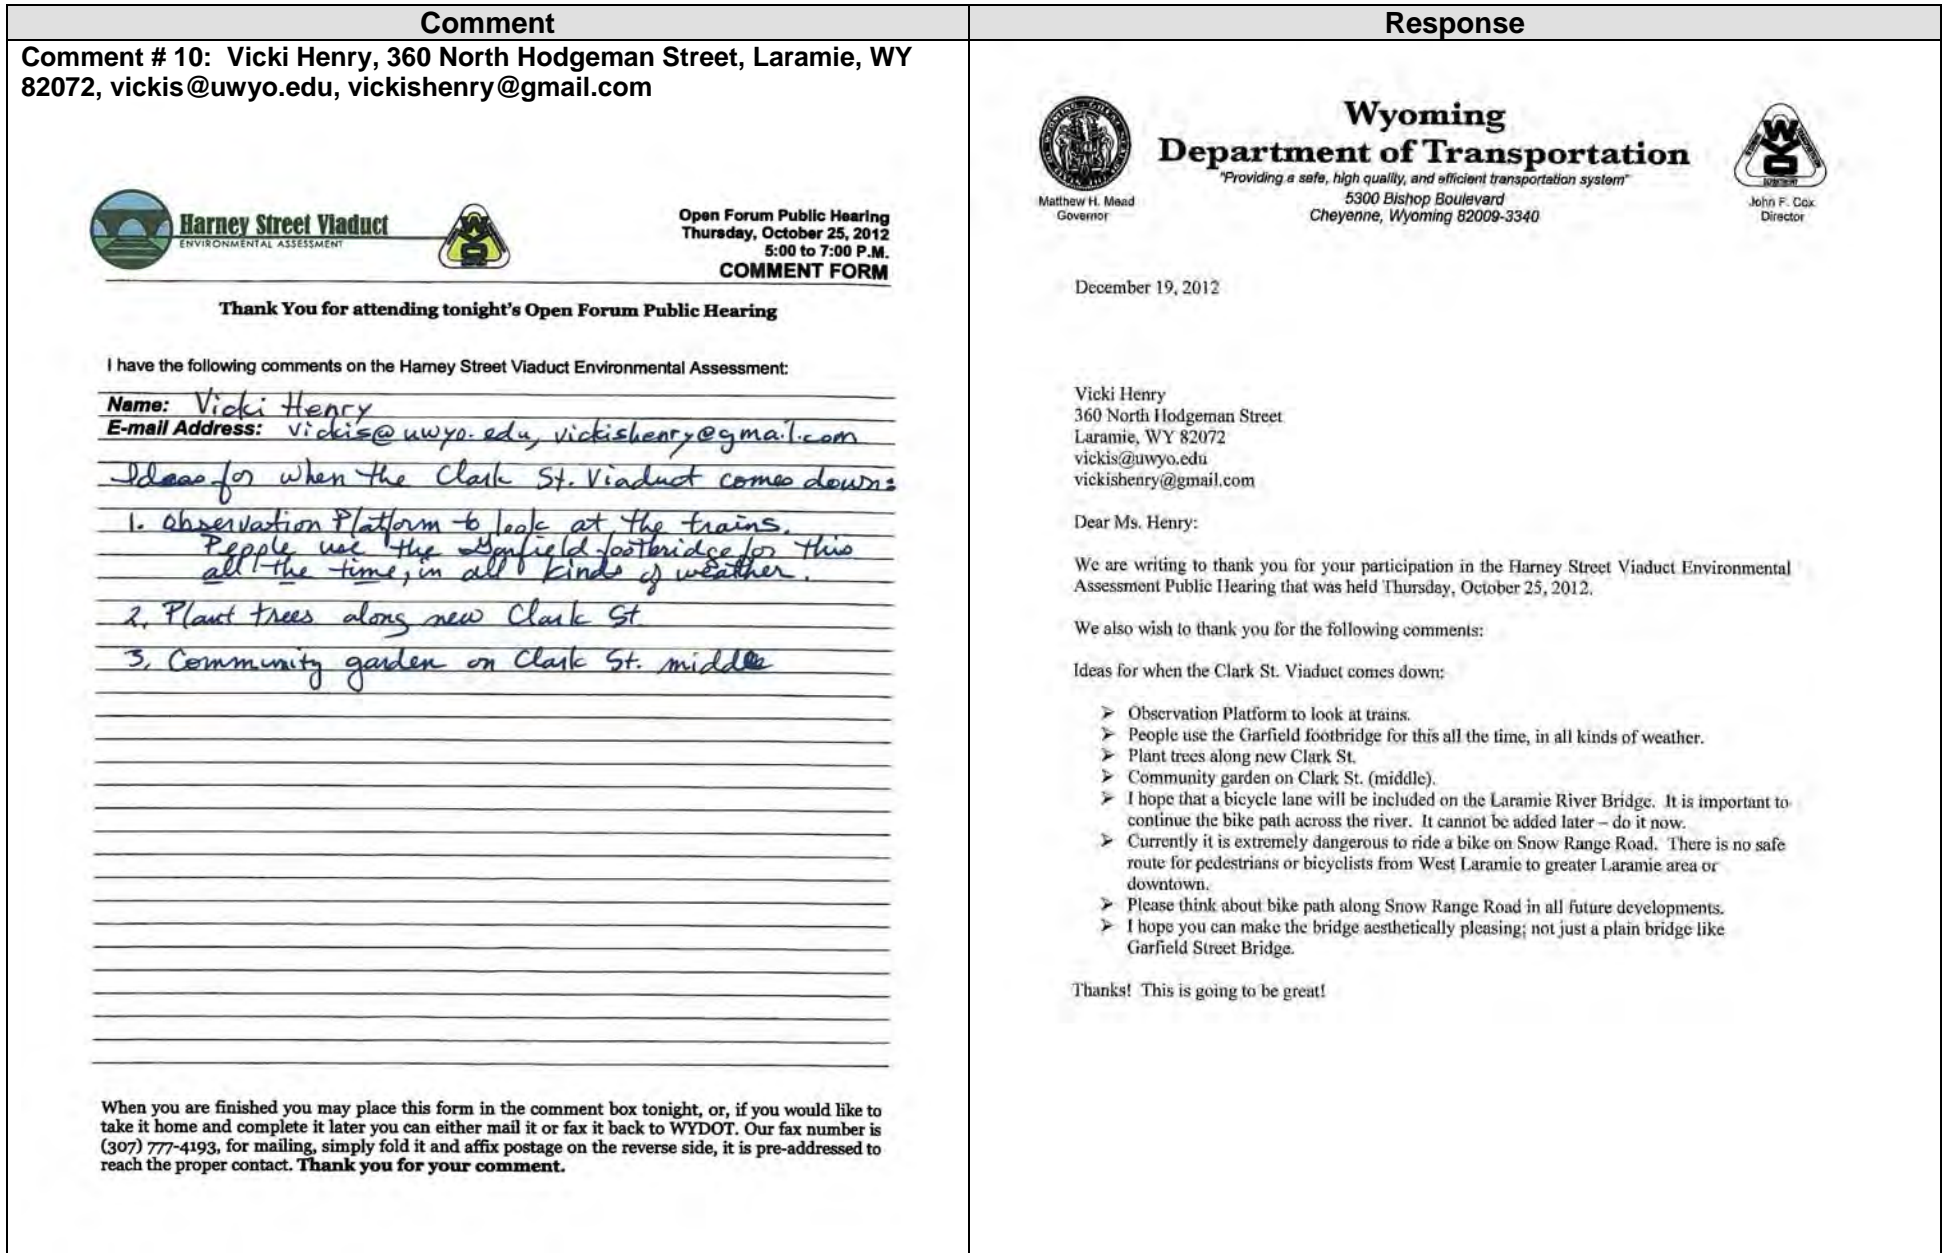 Comment
Response
Comment # 10:  Vicki Henry, 360 North Hodgeman Street, Laramie, WY
82072, vickis@uwyo.edu, vickishenry@gmail.com
Harney Street Viaduct
ENVIRONMENTAL ASSESSMENT
Open Forum Public Hearing
Thursday, October 25, 2012
5:00 to 7:00 P.M.
COMMENT FORM
Thank You for attending tonight's Open Forum Public Hearing
I have the following comments on the Harney Street Viaduct Environmental Assessment:
Name: Vicki Henry
E-mail Address: vickis@uwyo.edu, vickishenry@gmail.com
Ideas for when the Clark St. Viaduct comes down:
1. Observation Platform to look at the trains.
People use the Garfield footbridge for this
all the time, in all kinds of weather.
2. Plant trees along new Clark St
3. Community garden on Clark St. middle
When you are finished you may place this form in the comment box tonight, or, if you would like to
take it home and complete it later you can either mail it or fax it back to WYDOT. Our fax number is
(307) 777-4193, for mailing, simply fold it and affix postage on the reverse side, it is pre-addressed to
reach the proper contact. Thank you for your comment.
Wyoming
Department of Transportation
"Providing a safe, high quality, and efficient transportation system"
5300 Bishop Boulevard
Cheyenne, Wyoming 82009-3340
Matthew H. Mead
Governor
John F. Cox
Director
December 19, 2012
Vicki Henry
360 North Hodgeman Street
Laramie, WY 82072
vickis@uwyo.edu
vickishenry@gmail.com
Dear Ms. Henry:
We are writing to thank you for your participation in the Harney Street Viaduct Environmental
Assessment Public Hearing that was held Thursday, October 25, 2012.
We also wish to thank you for the following comments:
Ideas for when the Clark St. Viaduct comes down:
➢ Observation Platform to look at trains.
➢ People use the Garfield footbridge for this all the time, in all kinds of weather.
➢ Plant trees along new Clark St.
➢ Community garden on Clark St. (middle).
➢ I hope that a bicycle lane will be included on the Laramie River Bridge.  It is important to
continue the bike path across the river.  It cannot be added later – do it now.
➢ Currently it is extremely dangerous to ride a bike on Snow Range Road.  There is no safe
route for pedestrians or bicyclists from West Laramie to greater Laramie area or
downtown.
➢ Please think about bike path along Snow Range Road in all future developments.
➢ I hope you can make the bridge aesthetically pleasing; not just a plain bridge like
Garfield Street Bridge.
Thanks!  This is going to be great!